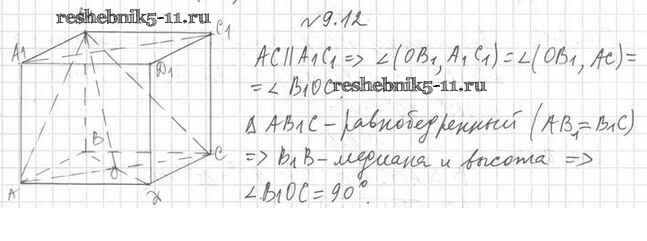 reshebnik5-11.ru
№9.12
A1
C1
D1
AC∥A1C1 => ∠(OB1, A1C1) = ∠(OB1, AC) =
= ∠B1OC.
reshebnik5-11.ru
Δ AB1C – равнобедренный (AB1=B1C)
B
=> B1B – медиана и высота =>
C
O
A
Д
∠B1OC = 90°.